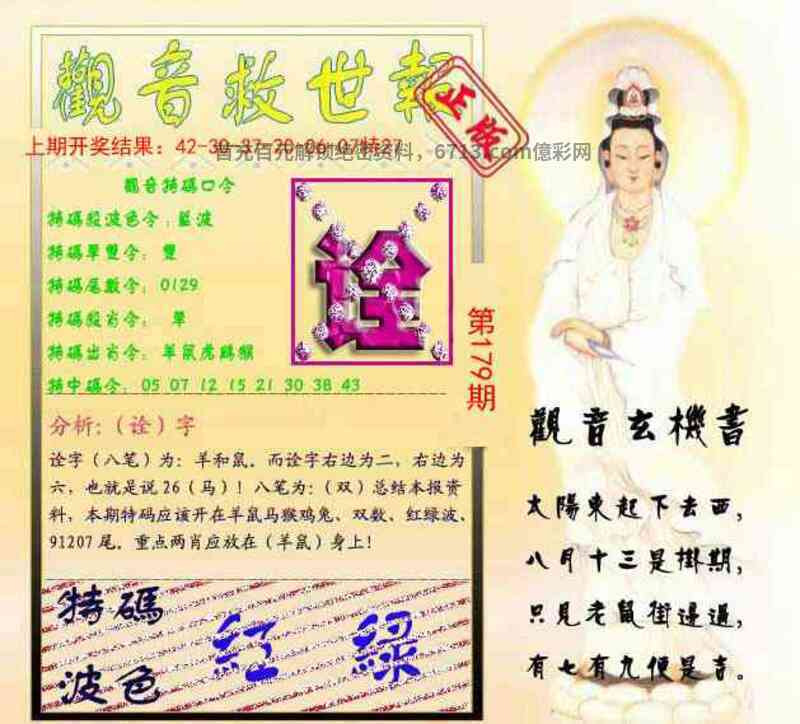 觀音救世報
正版
上期开奖结果：42-30-37-20-06-07特27
首充百元解锁绝密资料，6713.com億彩网
觀音特碼口令
特碼殺波色令：藍波
特碼單雙令：雙
特碼尾數令：0129
特碼殺肖令：單
特碼出肖令：羊鼠虎鷄猴
特中碼令：05 07 12 15 21 30 38 43
诠
第179期
分析:（诠）字
诠字（八笔）为：羊和鼠。而诠字右边为二，右边为
六，也就是说26（马）！八笔为:（双）总结本报资
料，本期特码应该开在羊鼠马猴鸡兔、双数、红绿波、
91207尾。重点两肖应放在（羊鼠）身上!
特碼
波色
紅 綠
觀音玄機書
太陽東起下去西，
八月十三是掛期，
只見老鼠街邊過，
有七有九便是吉。